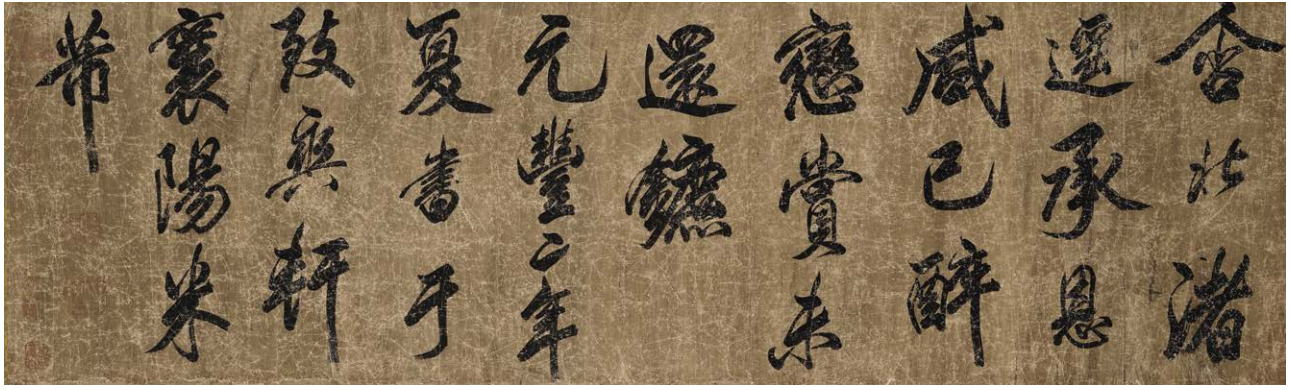 舍北渚
遥承恩
咸已醉
戀賞未
還鑣
元豐二年
夏書于
致爽軒
襄陽米
芾